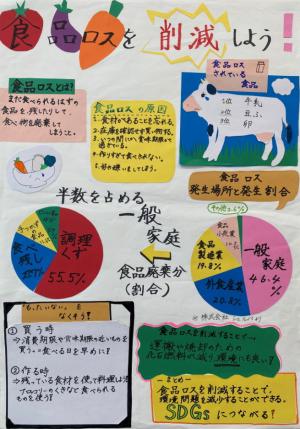 食品ロスを削減しよう!
食品ロスとは?
まだ食べられるはずの
食品を残したりして、
食べ物を廃棄して
しまうこと。
食品ロスの原因
食品ロス
されている
食品
1位 牛乳
2位 豆ふ
3位 卵
食品ロス
発生場所と発生割合
半数を占める
一般
家庭
食品廃棄分
(割合)
調理
くず
55.5%
食べ
残し
食品
製造業
19.8%
外食産業
20.8%
一般
家庭
46.4
%
もったいないを
なくそう!
①買う時
⇒消費期限や賞味期限の近いものを
買う。=食べる日を早めに!
②作る時
⇒残っている食材を使って料理しよう!
ブロッコリーのくきなど食べられる
ものを使う!
食品ロスを削減することで…
運搬や焼却のための
化石燃料の減り環境にも良い!
ーまとめー
食品ロスを削減することで、
環境問題を減少することができる。
SDGsにつながる?